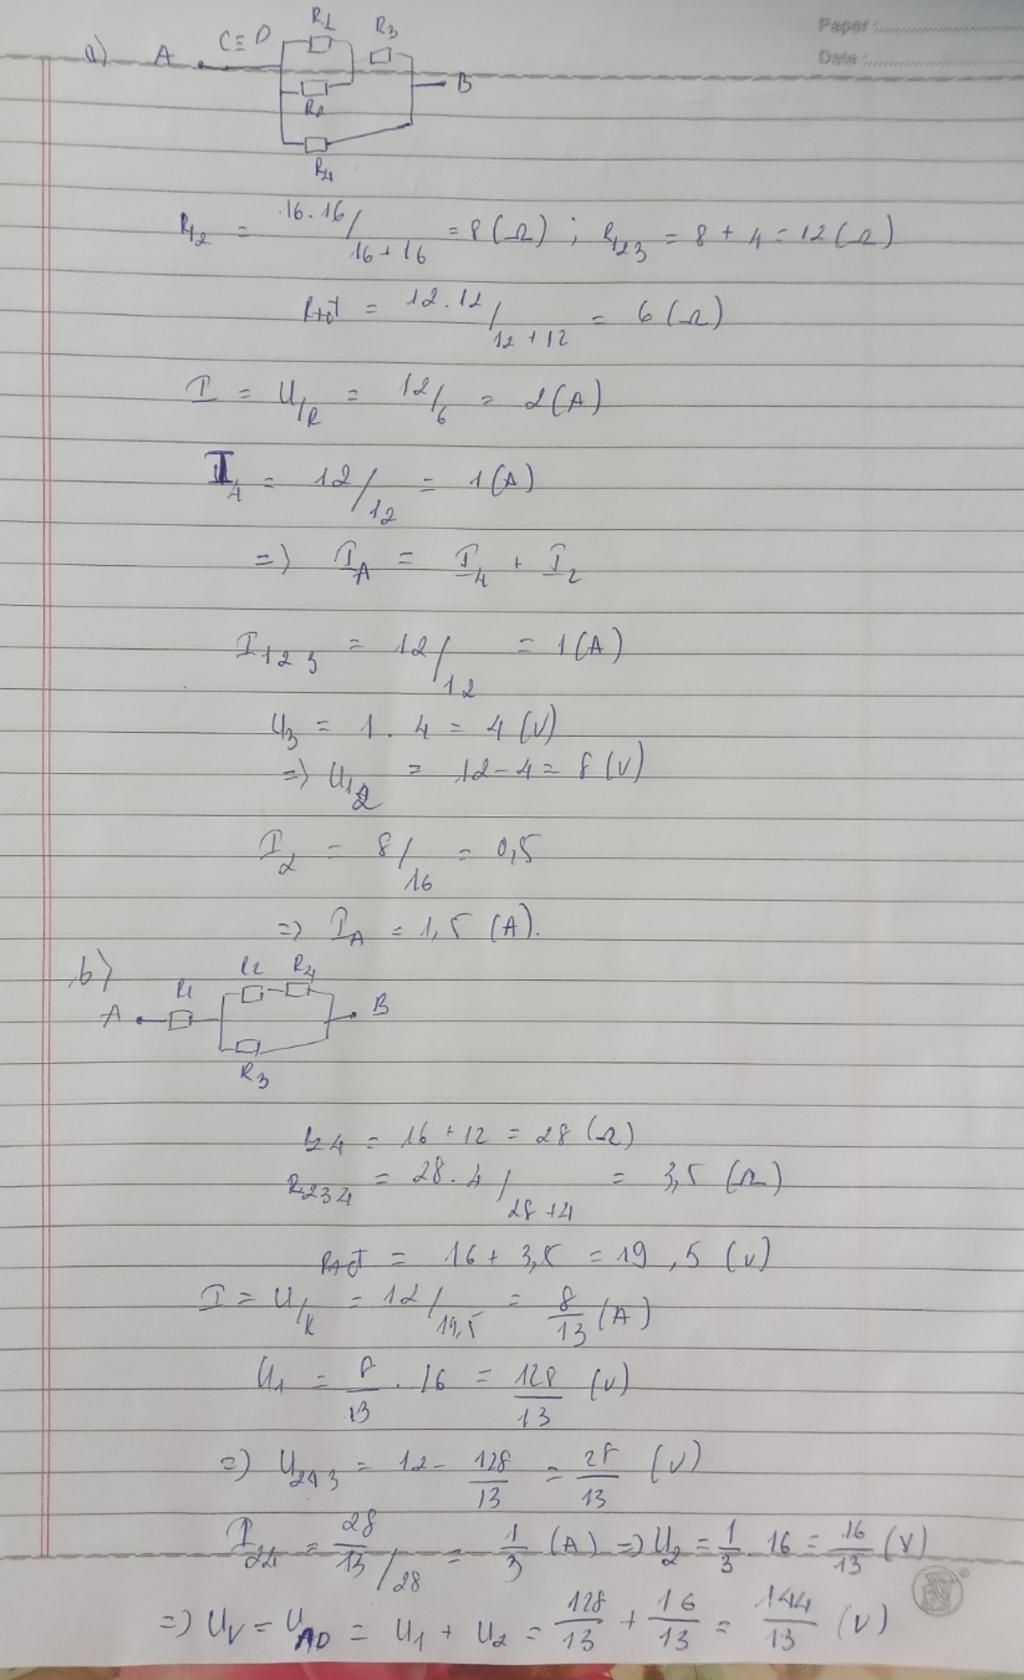 Paper :
Date :
a) A C≡D R1 R3 B
R2
R4
R12 = 16.16/16+16 = 8(Ω) ; R123 = 8 + 4 = 12(Ω)
Rtđ = 12.12/12+12 = 6(Ω)
I = U/R = 12/6 = 2(A)
I4 = 12/12 = 1(A)
=> IA = I4 + I2
I123 = 12/12 = 1(A)
U3 = 1 . 4 = 4(V)
=> U12 = 12 - 4 = 8(V)
I2 = 8/16 = 0,5
=> IA = 1,5 (A).
b) R2 R4
A R1 B
R3
R24 = 16 + 12 = 28 (Ω)
R234 = 28.4/28+4 = 3,5 (Ω)
Rtđ = 16 + 3,5 = 19,5 (V)
I = U/R = 12/19,5 = 8/13 (A)
U1 = 8/13 . 16 = 128/13 (V)
=> U243 = 12 - 128/13 = 28/13 (V)
I24 = 28/13/28 = 1/3 (A) => U2 = 1/3 . 16 = 16/13 (V)
=> UV = UAD = U1 + U2 = 128/13 + 16/13 = 144/13 (V)